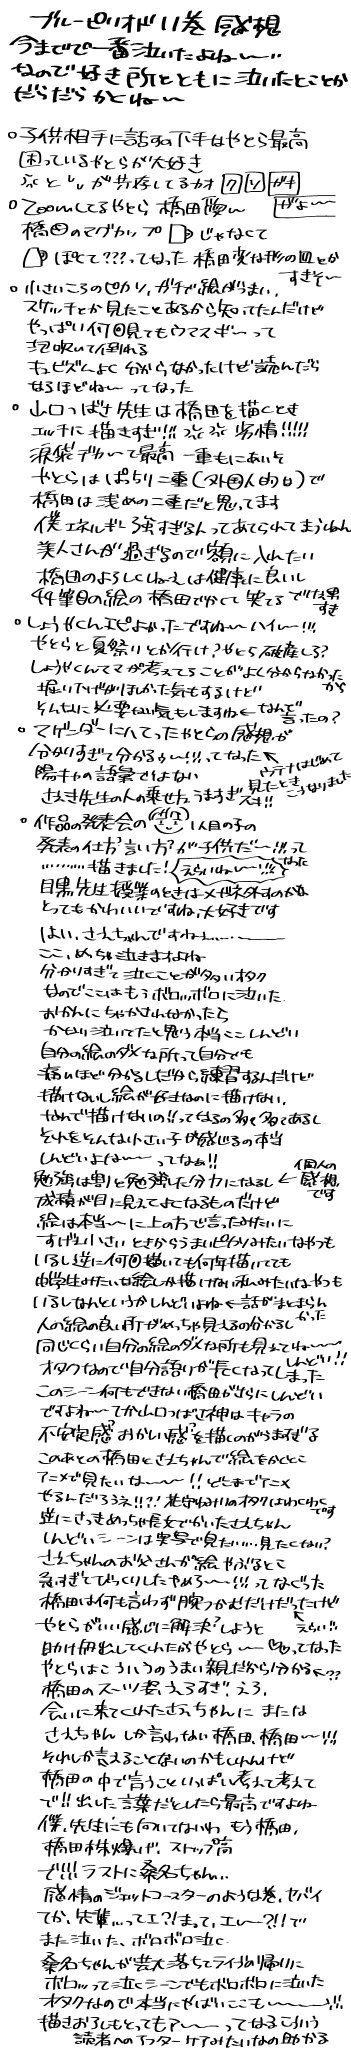 ブルーピリオド11巻 感想
今までで一番泣いたよね〜…
なので好き所とともに泣いたとことか
だらだらかくね〜
○子供相手に話すの下手なやとら最高
困っているやとらが大好き
ふくとしゅが共存してるカオ クソガキ
○Zoomしてるやとら 橋田顔〜 だよ〜
橋田のマグカップ じゃなくて
ぽくて???ってなった 橋田変な形の皿とか
すきそ〜
○小さいころのピカソ、ガチで絵がうまい、
スケッチとか見たことあるから知ってたんだけど
やっぱ何回見てもウマスギ〜って
泡吹いて倒れる
キュビズムよく分からなかったけど読んだら
なるほどね〜ってなった
○山口つばさ先生は橋田を描くとき
エッチに描きすぎ!!!
涙袋デカくて最高 一重もにあいそ
やとらはぱっちり二重(外国人的な)で
橋田は浅めの二重だと思ってます
僕エネルギー強すぎる人ってあてられてまうねん
美人さんが過ぎるので額に入れたい
橋田のよろしくねーえは健康に良いし
44筆目の絵の橋田でかくて笑てる でけぇ男
すき
○しょうやくんエピよかったですね〜ハイ〜!!!
やとらと夏祭りとか行け?やとら破産しろ?
しょうやくんてママが考えてることがよく分からなかった
から
掘り下げがほしかった気もするけど
そんなに必要ない気もしますね←なんで
言ったの?
○マゲンダーに入ってったやとらの感想が
分かりすぎて分かるぅ〜!!!ってなった
陽キャの語彙ではない
さえき先生の人の乗せ方うますぎ
見たとき
スキ!!
こうなりました
○作品の発表会の 1人目の子の
発表の仕方言い方が子供だ〜!!って
…………描きました! えらいね〜!!! なった
目黒先生授業のときはメガネ外すのかな
とってもかわいいですね、大好きです
はい、さえちゃんですね……
ここ、めっちゃ泣きますよね
分かりすぎて泣くことが多いオタク
なのでここはもうボロッボロに泣いた
おかんにちゃかされなかったら
かなり泣いてたと思う本当ここしんどい
自分の絵のダメな所って自分でも
痛いほど分かるしだから練習するんだけど
描けないし絵が好きなのに描けない、
なんで描けないの!!ってなるの多々多々あるし
それをそんな小さい子が感じるの本当
しんどいよな〜ってなぁ!!
勉強は割と勉強した分力になるし ←個人の
感想
です
成績が目に見えてよくなるものだけど
絵は本当〜に上の方で言ったみたいに
すげえ小さいときからうまいピカソみたいなやつも
いるし逆に何回描いても何年描いてても
中学生みたいな絵しか描けない私みたいなやつも
いるしなんというかしんどいよね←話がまとまらん
かった
人の絵の良い所がめっちゃ見えるの分かるし
同じくらい自分の絵のダメな所も見えてね〜
しんどい!!
オタクなので自分語りが長くなってしまった
このシーン何もできない橋田がさらにしんどい
ですよね〜てか山口つばさ神はキャラの
不安定感?おかしい感?を描くのがうますぎる
このあとの橋田とさえちゃんで絵をかくとこ
アニメで見たいな〜〜!! どこまでアニメ
やるんだろうネ!!?!
です
逆にさっきめっちゃ長文でかいたさえちゃん
しんどいシーンは実写で見たい…見たくない?
さえちゃんのお父さんが絵やぶるとこ
急すぎてびっくりしたやめろ〜!!!ってなぐった
橋田は何も言わず腕つかむだけだったけど
えらい!!
やとらがいい感じに解決?しようと
助け舟出してくれたがやとら〜〜ってなった
やとらはこういうのうまい親だから分かる←??
橋田のスーツ姿、えろすぎ、えろ、
会いに来てくれたさえちゃんに またな
さえちゃん しか言わない橋田、橋田〜!!!
それしか言えることないのかもしれんけど
橋田の中で言うこといっぱい考えて考えて
で!!出した言葉だとしたら最高ですよね
僕、先生にも向いてないわ もう橋田、
橋田株爆上げ、ストップ高
で!!!ラストに桑名ちゃん…
感情のジェットコースターのような巻、ヤバイ
てか、先輩…ってエ?!まって、エレ〜?!!で
また泣いた、ボロボロ泣く
桑名ちゃんが芸大落ちてライブの帰りに
ボロッって泣くシーンでもボロボロに泣いた
オタクなので本当にやばいここも〜〜!!!
描きおろしもとってもア〜〜ってなるこういう
読者へのアフターケアみたいなの助かる